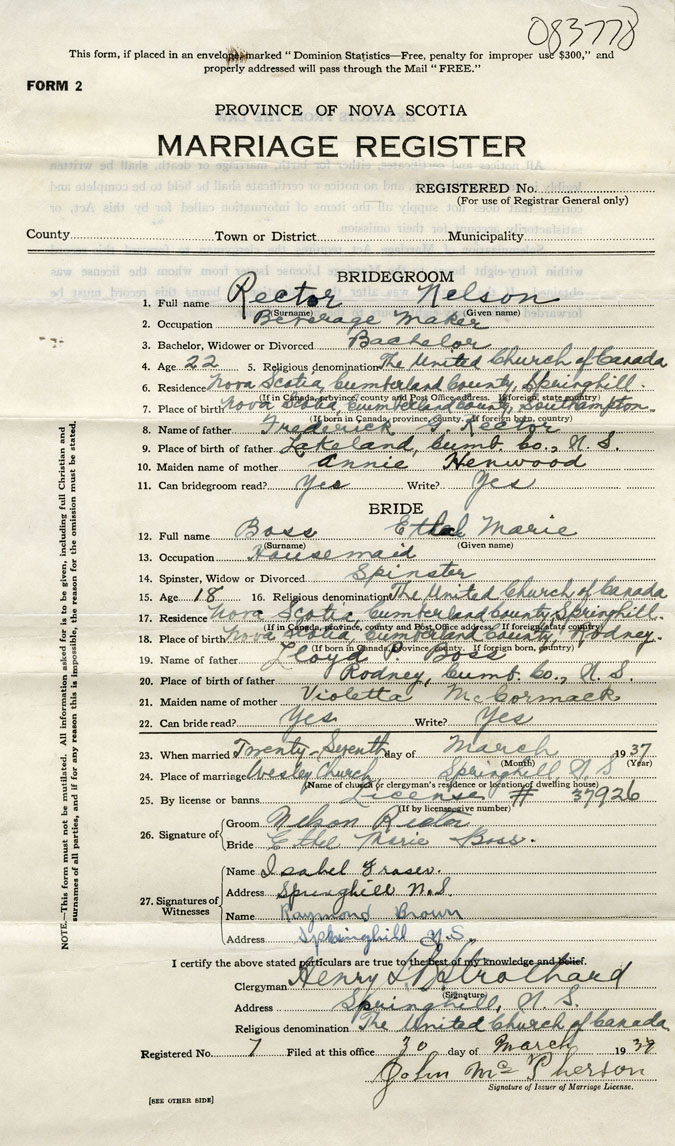 083778
This form, if placed in an envelope, marked "Dominion Statistics—Free, penalty for improper use $300," and
properly addressed will pass through the Mail "FREE."
FORM 2
PROVINCE OF NOVA SCOTIA
MARRIAGE REGISTER
REGISTERED No.
(For use of Registrar General only)
County Town or District Municipality
BRIDEGROOM
1. Full name Rector Nelson
(Surname) (Given name)
2. Occupation Beverage Maker
3. Bachelor, Widower or Divorced Bachelor
4. Age 22 5. Religious denomination The United Church of Canada
6. Residence Nova Scotia, Cumberland County, Springhill.
(If in Canada, province, county and Post Office address. If foreign state country)
7. Place of birth Nova Scotia, Cumberland County, Southampton.
(If born in Canada, province, county. If foreign born, country)
8. Name of father Frederick S. Rector
9. Place of birth of father Lakeland, Cumb. Co., N. S.
10. Maiden name of mother Annie Henwood
11. Can bridegroom read? Yes Write? Yes
BRIDE
12. Full name Boss Ethel Marie
(Surname) (Given name)
13. Occupation Housemaid
14. Spinster, Widow or Divorced Spinster
15. Age 18 16. Religious denomination The United Church of Canada
17. Residence Nova Scotia, Cumberland County, Springhill.
(If in Canada, province, county and Post Office address. If foreign state country)
18. Place of birth Nova Scotia, Cumberland County, Rodney.
(If born in Canada, province, county. If foreign born, country)
19. Name of father Lloyd P. Boss
20. Place of birth of father Rodney, Cumb. Co., N. S.
21. Maiden name of mother Violetta McCormack
22. Can bride read? Yes Write? Yes
23. When married Twenty-Seventh day of March 1937
(Month) (Year)
24. Place of marriage Wesley Church, Springhill, N. S
(Name of church or clergyman's residence or location of dwelling house)
25. By license or banns License # 37926
(If by license give number)
26. Signature of
Groom Nelson Rector
Bride Ethel Marie Boss.
27. Signatures of Witnesses
Name Isabel Fraser.
Address Springhill N.S.
Name Raymond Brown
Address Springhill N.S.
I certify the above stated particulars are true to the best of my knowledge and belief.
Clergyman Henry Strothard
(Signature)
Address Springhill, N. S.
Religious denomination The United Church of Canada
Registered No. 7 Filed at this office 30 day of March 1937
John McPherson
Signature of Issuer of Marriage License.
[SEE OTHER SIDE]
NOTE.—This form must not be mutilated. All information asked for is to be given, including full Christian and
surnames of all parties, and if for any reason this is impossible, the reason for the omission must be stated.